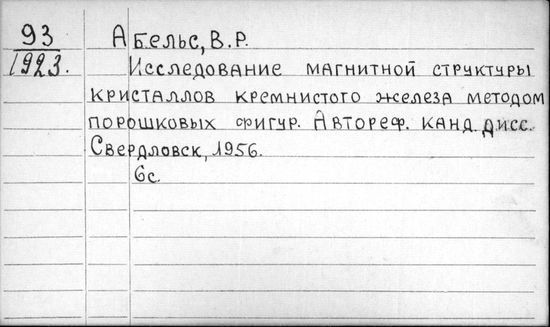 93
1923.
Абельс, В.Р.
Исследование магнитной структуры
кристаллов кремнистого железа методом
порошковых фигур. Автореф. канд. дисс.
Свердловск, 1956.
6с.